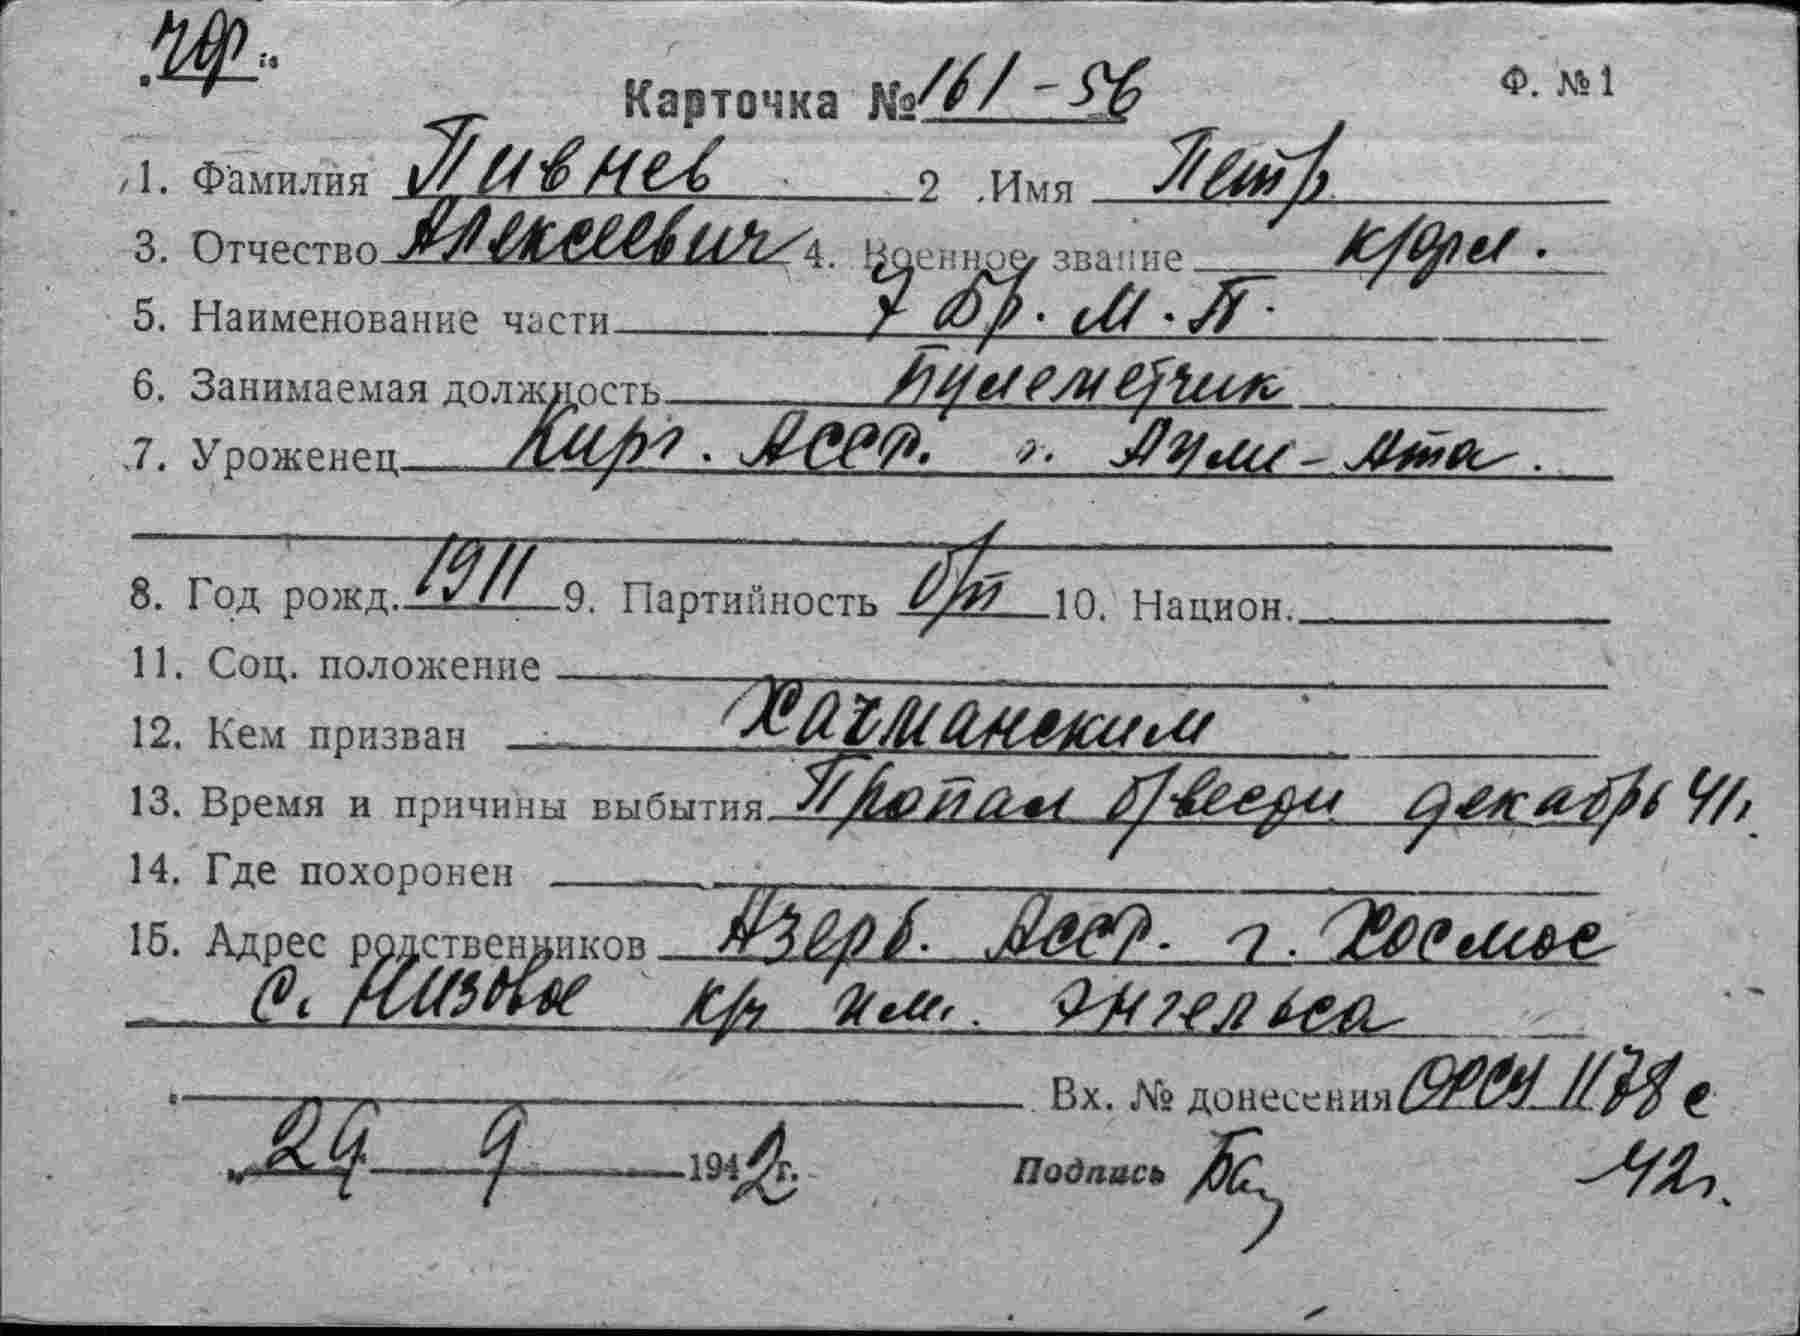 ЧФ
Карточка № 161-56 Ф. №1
1. Фамилия Пивнев 2. Имя Петр
3. Отчество Алексеевич 4. Военное звание к/фл.
5. Наименование части 7 Бр. М. П.
6. Занимаемая должность Пулеметчик
7. Уроженец Кирг. АССР. г. Аули-Ата.
8. Год рожд. 1911 9. Партийность б/п 10. Национ.
11. Соц. положение
12. Кем призван Хачманским
13. Время и причины выбытия Пропал б/вести декабрь 41г.
14. Где похоронен
15. Адрес родственников Азерб. АССР. г. Хосмос
с. Низовое к/з им. Энгельса
Вх. № донесения ОРСУ 1178с
29 9 1942г. Подпись 42г.